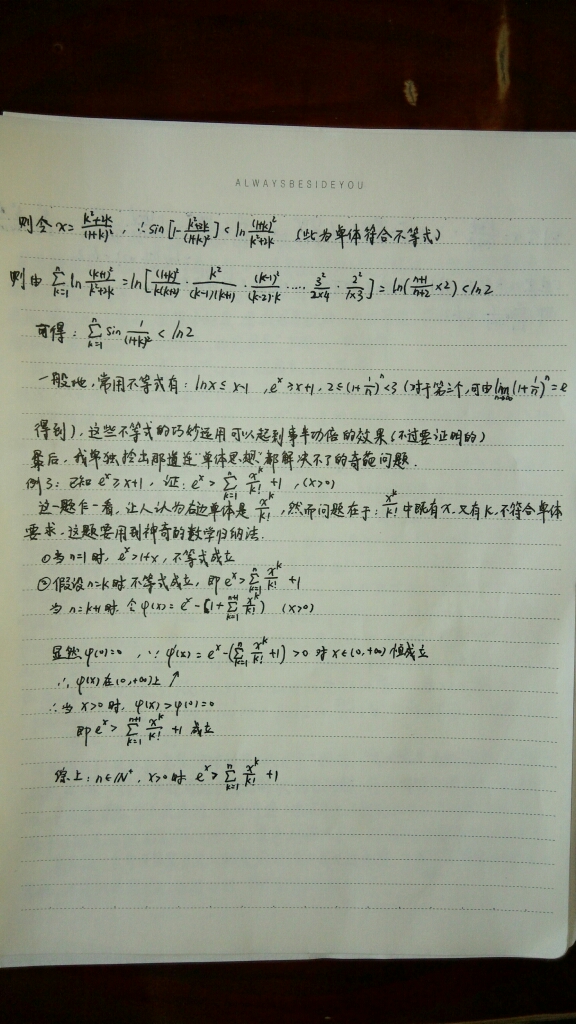 ALWAYSBESIDEYOU
则令 x = \frac{k^2+2k}{(1+k)^2}, ∴ sin[1-\frac{k^2+2k}{(1+k)^2}] < ln\frac{(1+k)^2}{k^2+2k} (此为单体符合不等式)
则由 \sum_{k=1}^{n} ln\frac{(k+1)^2}{k^2+2k} = ln[\frac{(1+n)^2}{n(n+2)} · \frac{n^2}{(n-1)(n+1)} · \frac{(n-1)^2}{(n-2)·n} ···· \frac{3^2}{2×4} · \frac{2^2}{1×3}] = ln(\frac{n+1}{n+2}×2) < ln2
可得: \sum_{k=1}^{n} sin\frac{1}{(1+k)^2} < ln2
一般地,常用不等式有: lnx ≤ x-1, e^x ≥ x+1, 2≤(1+\frac{1}{n})^n<3 (对于第三个,可由\lim_{n→∞}(1+\frac{1}{n})^n = e
得到),这些不等式的巧妙运用可以起到事半功倍的效果(不过要证明的)
最后,我单独拎出那道连"单体思想"都解决不了的奇葩问题.
例3: 已知 e^x ≥ x+1, 证: e^x > \sum_{k=1}^{n} \frac{x^k}{k!} +1, (x>0)
这一题乍一看,让人认为右边单体是 \frac{x^k}{k!}, 然而问题在于: \frac{x^k}{k!} 中既有 x, 又有 k, 不符合单体
要求.这题要用到神奇的数学归纳法.
①当 n=1 时, e^x > 1+x, 不等式成立
②假设 n=k 时不等式成立, 即 e^x > \sum_{k=1}^{n} \frac{x^k}{k!} +1
当 n=k+1 时 令 φ(x) = e^x - (1+\sum_{k=1}^{n+1} \frac{x^k}{k!}) (x>0)
显然 φ(0)=0, ∵ φ'(x) = e^x-(\sum_{k=1}^{n} \frac{x^k}{k!} +1) > 0 对 x∈(0,+∞) 恒成立
∴ φ(x) 在 (0,+∞) 上 ↗
∴ 当 x>0 时, φ(x) > φ(0) = 0
即 e^x > \sum_{k=1}^{n+1} \frac{x^k}{k!} +1 成立
综上: n∈N^+, x>0 时 e^x > \sum_{k=1}^{n} \frac{x^k}{k!} +1